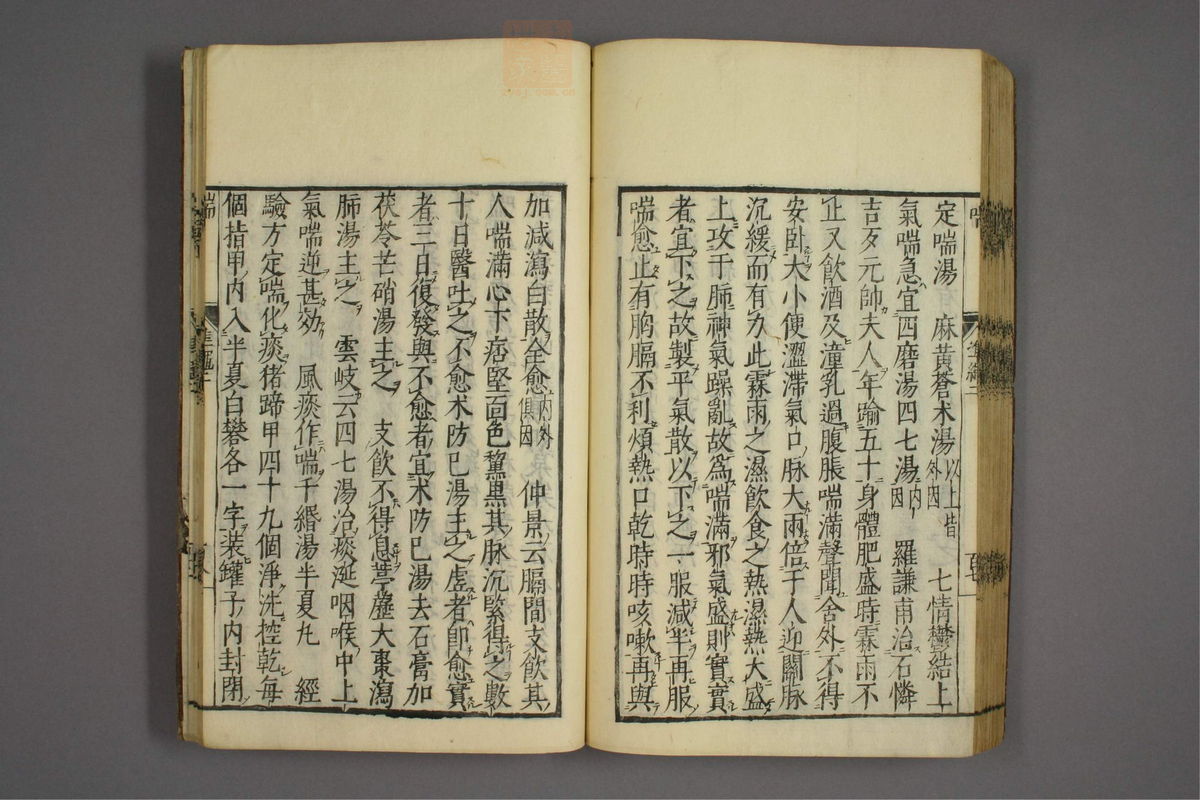 定喘湯　麻黃蒼术湯以上皆外因　七情鬱結上
氣喘急宜四磨湯四七湯内因　羅謙甫治石憐
吉歹元帥夫人年踰五十身體肥盛時霖雨不
止又飲酒及潼乳過腹脹喘滿聲聞舍外不得
安卧大小便澀滯氣口脉大兩倍于人迎關脉
沉緩而有力此霖雨之濕飲食之熱濕熱大盛
上攻于肺神氣躁亂故爲喘滿邪氣盛則實實
者宜下之故製平氣散以下之一服減半再服
喘愈止有胸膈不利煩熱口乾時時咳嗽再與
加減瀉白散全愈内外俱因　仲景云膈間支飲其
人喘滿心下痞堅面色黧黑其脉沉緊得之數
十日醫吐之不愈木防已湯主之虛者即愈實
者三日復發與不愈者宜木防已湯去石膏加
茯苓芒硝湯主之　支飲不得息葶藶大棗瀉
肺湯主之　雲岐云四七湯治痰涎咽喉中上
氣喘逆甚効　風痰作喘千緡湯半夏丸　經
驗方定喘化痰猪蹄甲四十九個淨洗控乾每
個指甲内入半夏白礬各一字裝罐子内封閉
喘